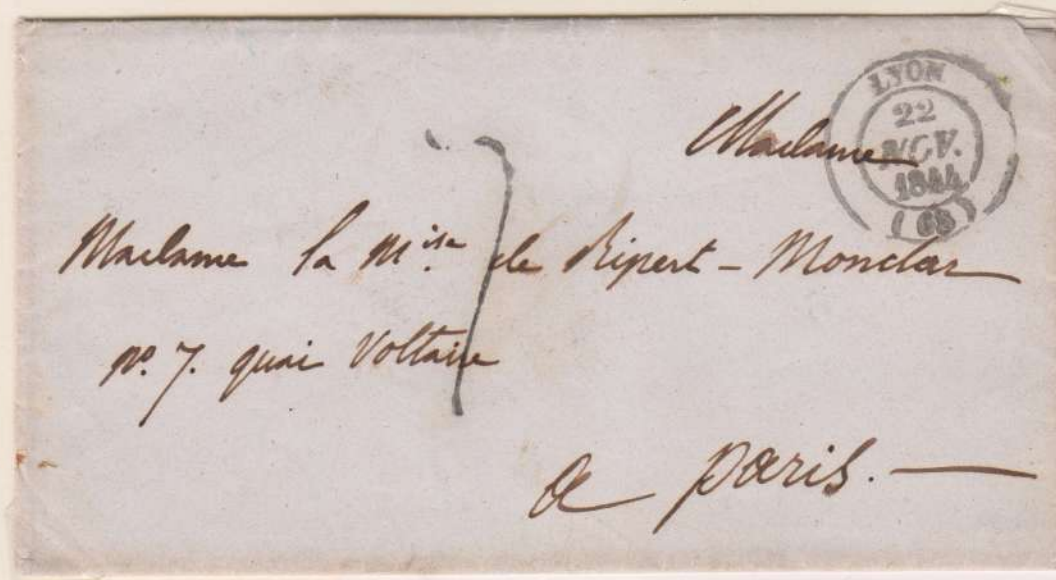 LYON
22
NOV.
1844
(68)
Madame
7
Madame la Mise de Ripert - Monclar
no. 7. quai Voltaire
a Paris. —